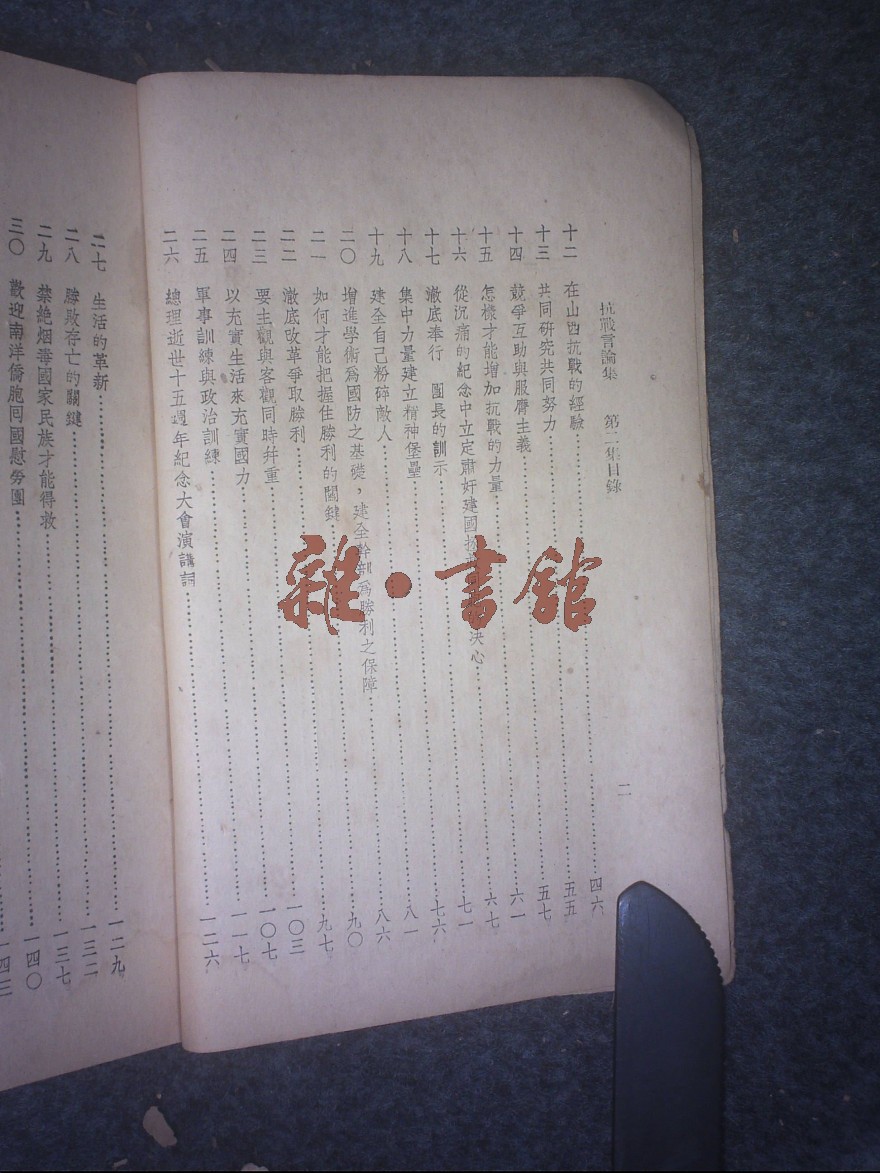 抗戰言論集　第二集目錄
二
十二　在山西抗戰的經驗……四六
十三　共同研究共同努力……五五
十四　競爭互助與服膺主義……五七
十五　怎樣才能增加抗戰的力量……六一
十六　從沉痛的紀念中立定肅奸建國決心……六七
十七　澈底奉行　團長的訓示……七一
十八　集中力量建立精神堡壘……七六
十九　建全自己粉碎敵人……八一
二〇　增進學術為國防之基礎，建全幹部為勝利之保障……八六
二一　如何才能把握住勝利的關鍵……九〇
二二　澈底改革爭取勝利……九七
二三　要主觀與客觀同時幷重……一〇三
二四　以充實生活來充實國力……一〇七
二五　軍事訓練與政治訓練……一一七
二六　總理逝世十五週年紀念大會演講詞……一二六
二七　生活的革新……一二九
二八　勝敗存亡的關鍵……一三二
二九　禁絕烟毒國家民族才能得救……一三七
三〇　歡迎南洋僑胞囘國慰勞團……一四〇
一四三
雜·書館